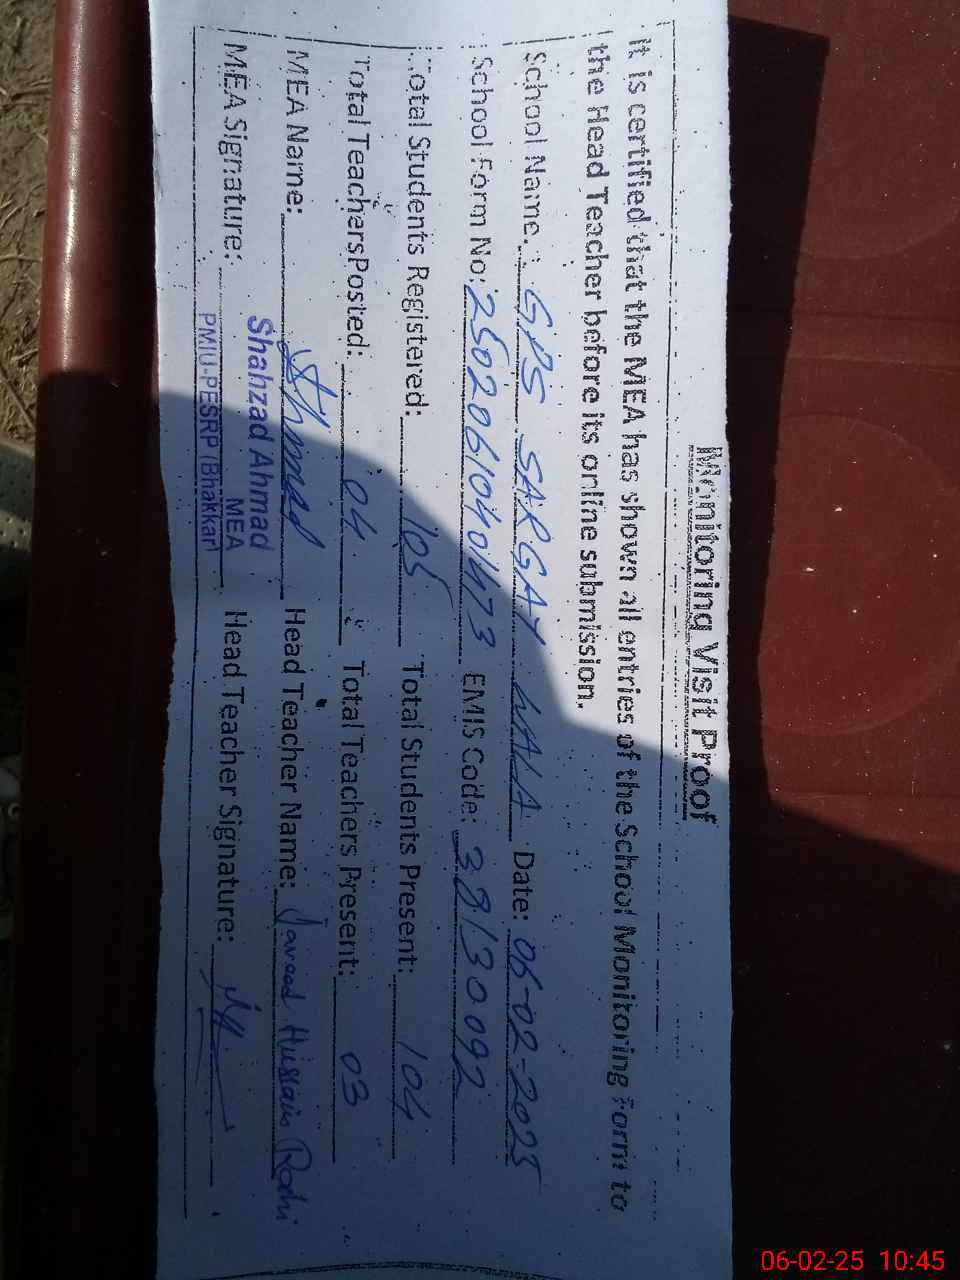 Monitoring Visit Proof
It is certified that the MEA has shown all entries of the School Monitoring Form to
the Head Teacher before its online submission.
School Name: GPS SARGAY WALA Date: 06-02-2025
School Form No: 2502061040473 EMIS Code: 38130092
Total Students Registered: 105 Total Students Present: 104
Total Teachers Posted: 04 Total Teachers Present: 03
MEA Name: Ahmed Head Teacher Name: Javeed Hussain
MEA Signature: Head Teacher Signature:
Shahzad Ahmad
MEA
PMIU-PESRP (Bhakkar)
06-02-25 10:45